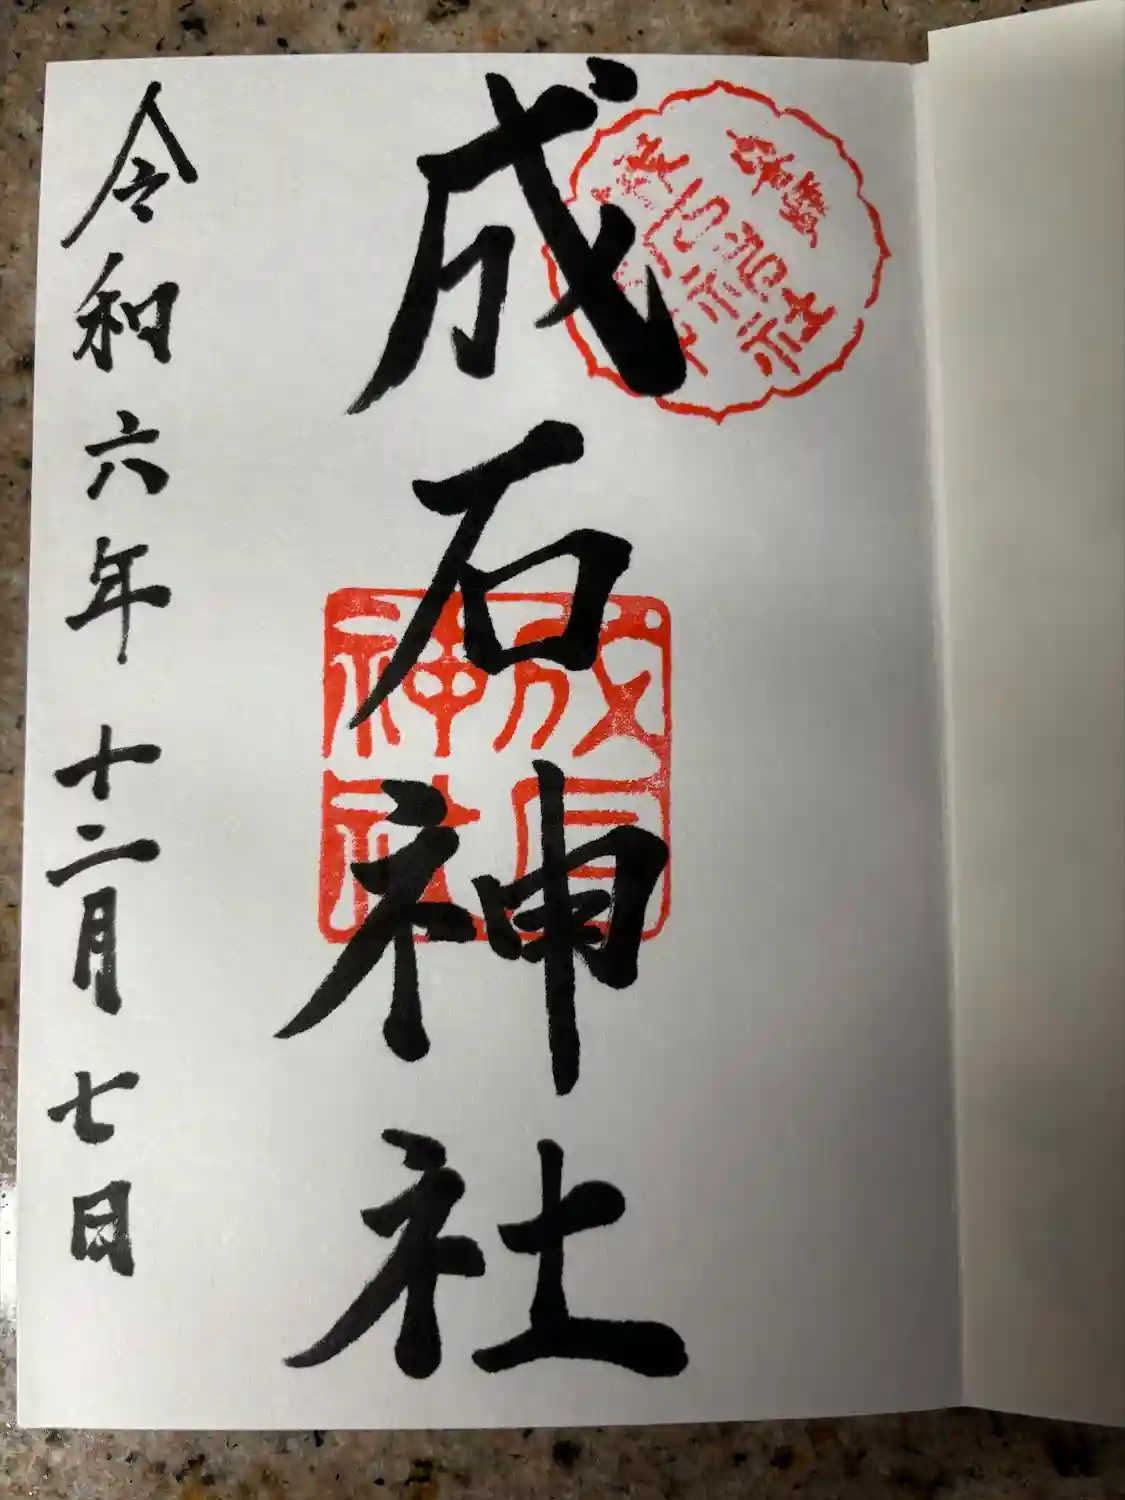 成石神社
成石神社
令和六年十二月七日